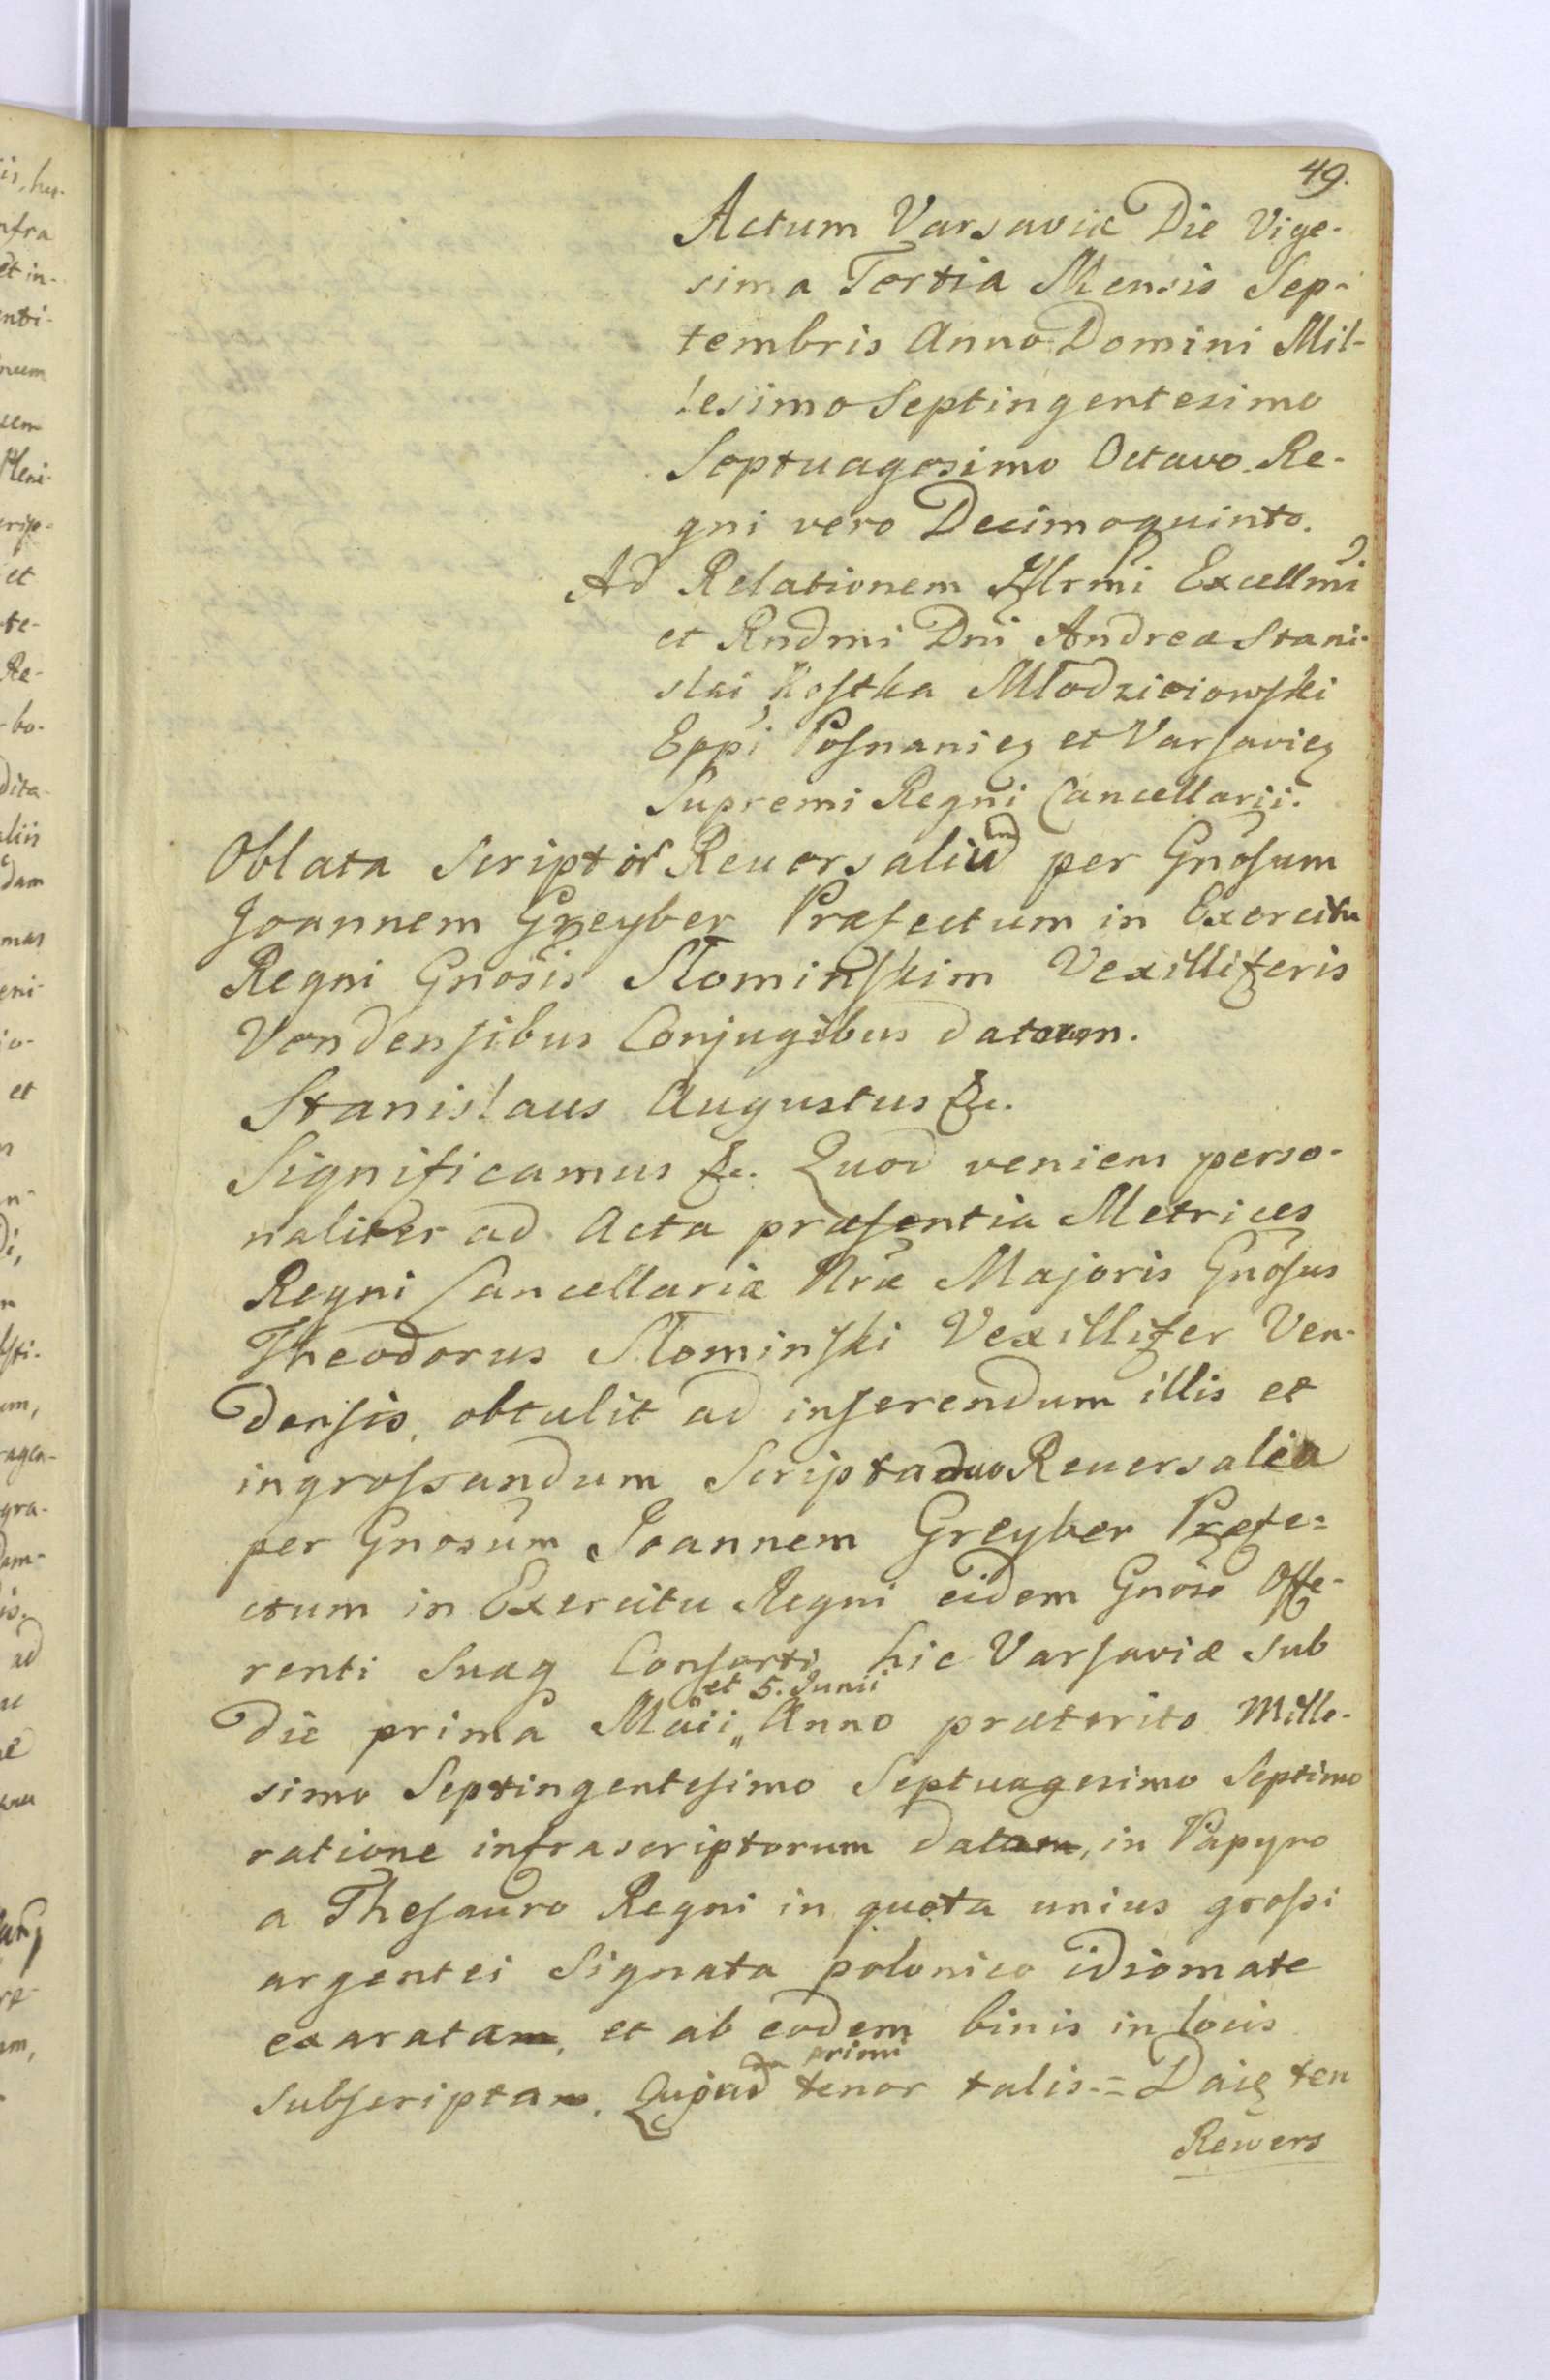 49.
Actum Varsaviæ Die Vige-
sima Tertia Mensis Sep-
tembris Anno Domini Mil-
lesimo Septingentesimo
Septuagesimo Octavo. Re-
gni vero Decimoquinto.
Ad Relationem Illrmi Excellmi
et Rndmi Dni Andreæ Stani-
slai Kostka Młodzieiowski
Eppi Posnanieз et Varsavieз
Supremi Regni Cancellarii.
Oblata Scriptor Reversalium per Gnosum
Joannem Greyber Præfectum in Exercitu
Regni Gnosis Słominskim Vexilliferis
Vendensibus Conjugibus datorum.
Stanislaus Augustus &c.
Significamus &c. Quod veniens perso-
naliter ad Acta præsentia Metrices
Regni Cancellariæ Nræ Majoris Gnosus
Theodorus Słominski Vexillifer Ven-
densis, obtulit ad inserendum illis et
ingrossandum Scripta duo Reversalia
per Gnosum Joannem Greyber Præfe=
ctum in Exercitu Regni eidem Gnoso Offe-
renti Suæq Consorti hic Varsaviæ sub
et 5. Junii
die prima Maii „ Anno præterito Mille-
simo Septingentesimo Septuagesimo Septimo
ratione infrascriptorum data, in Papyro
a Thesauro Regni in quota unius grossi
argentei Signata polonico idiomate
exarata, et ab eodem binis in locis
primi
subscripta. tenor talis = Daię ten
Rewers